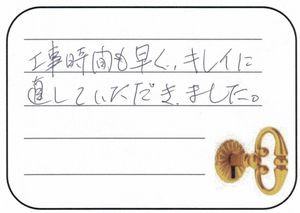 工事時間も早く、キレイに
直していただきました。